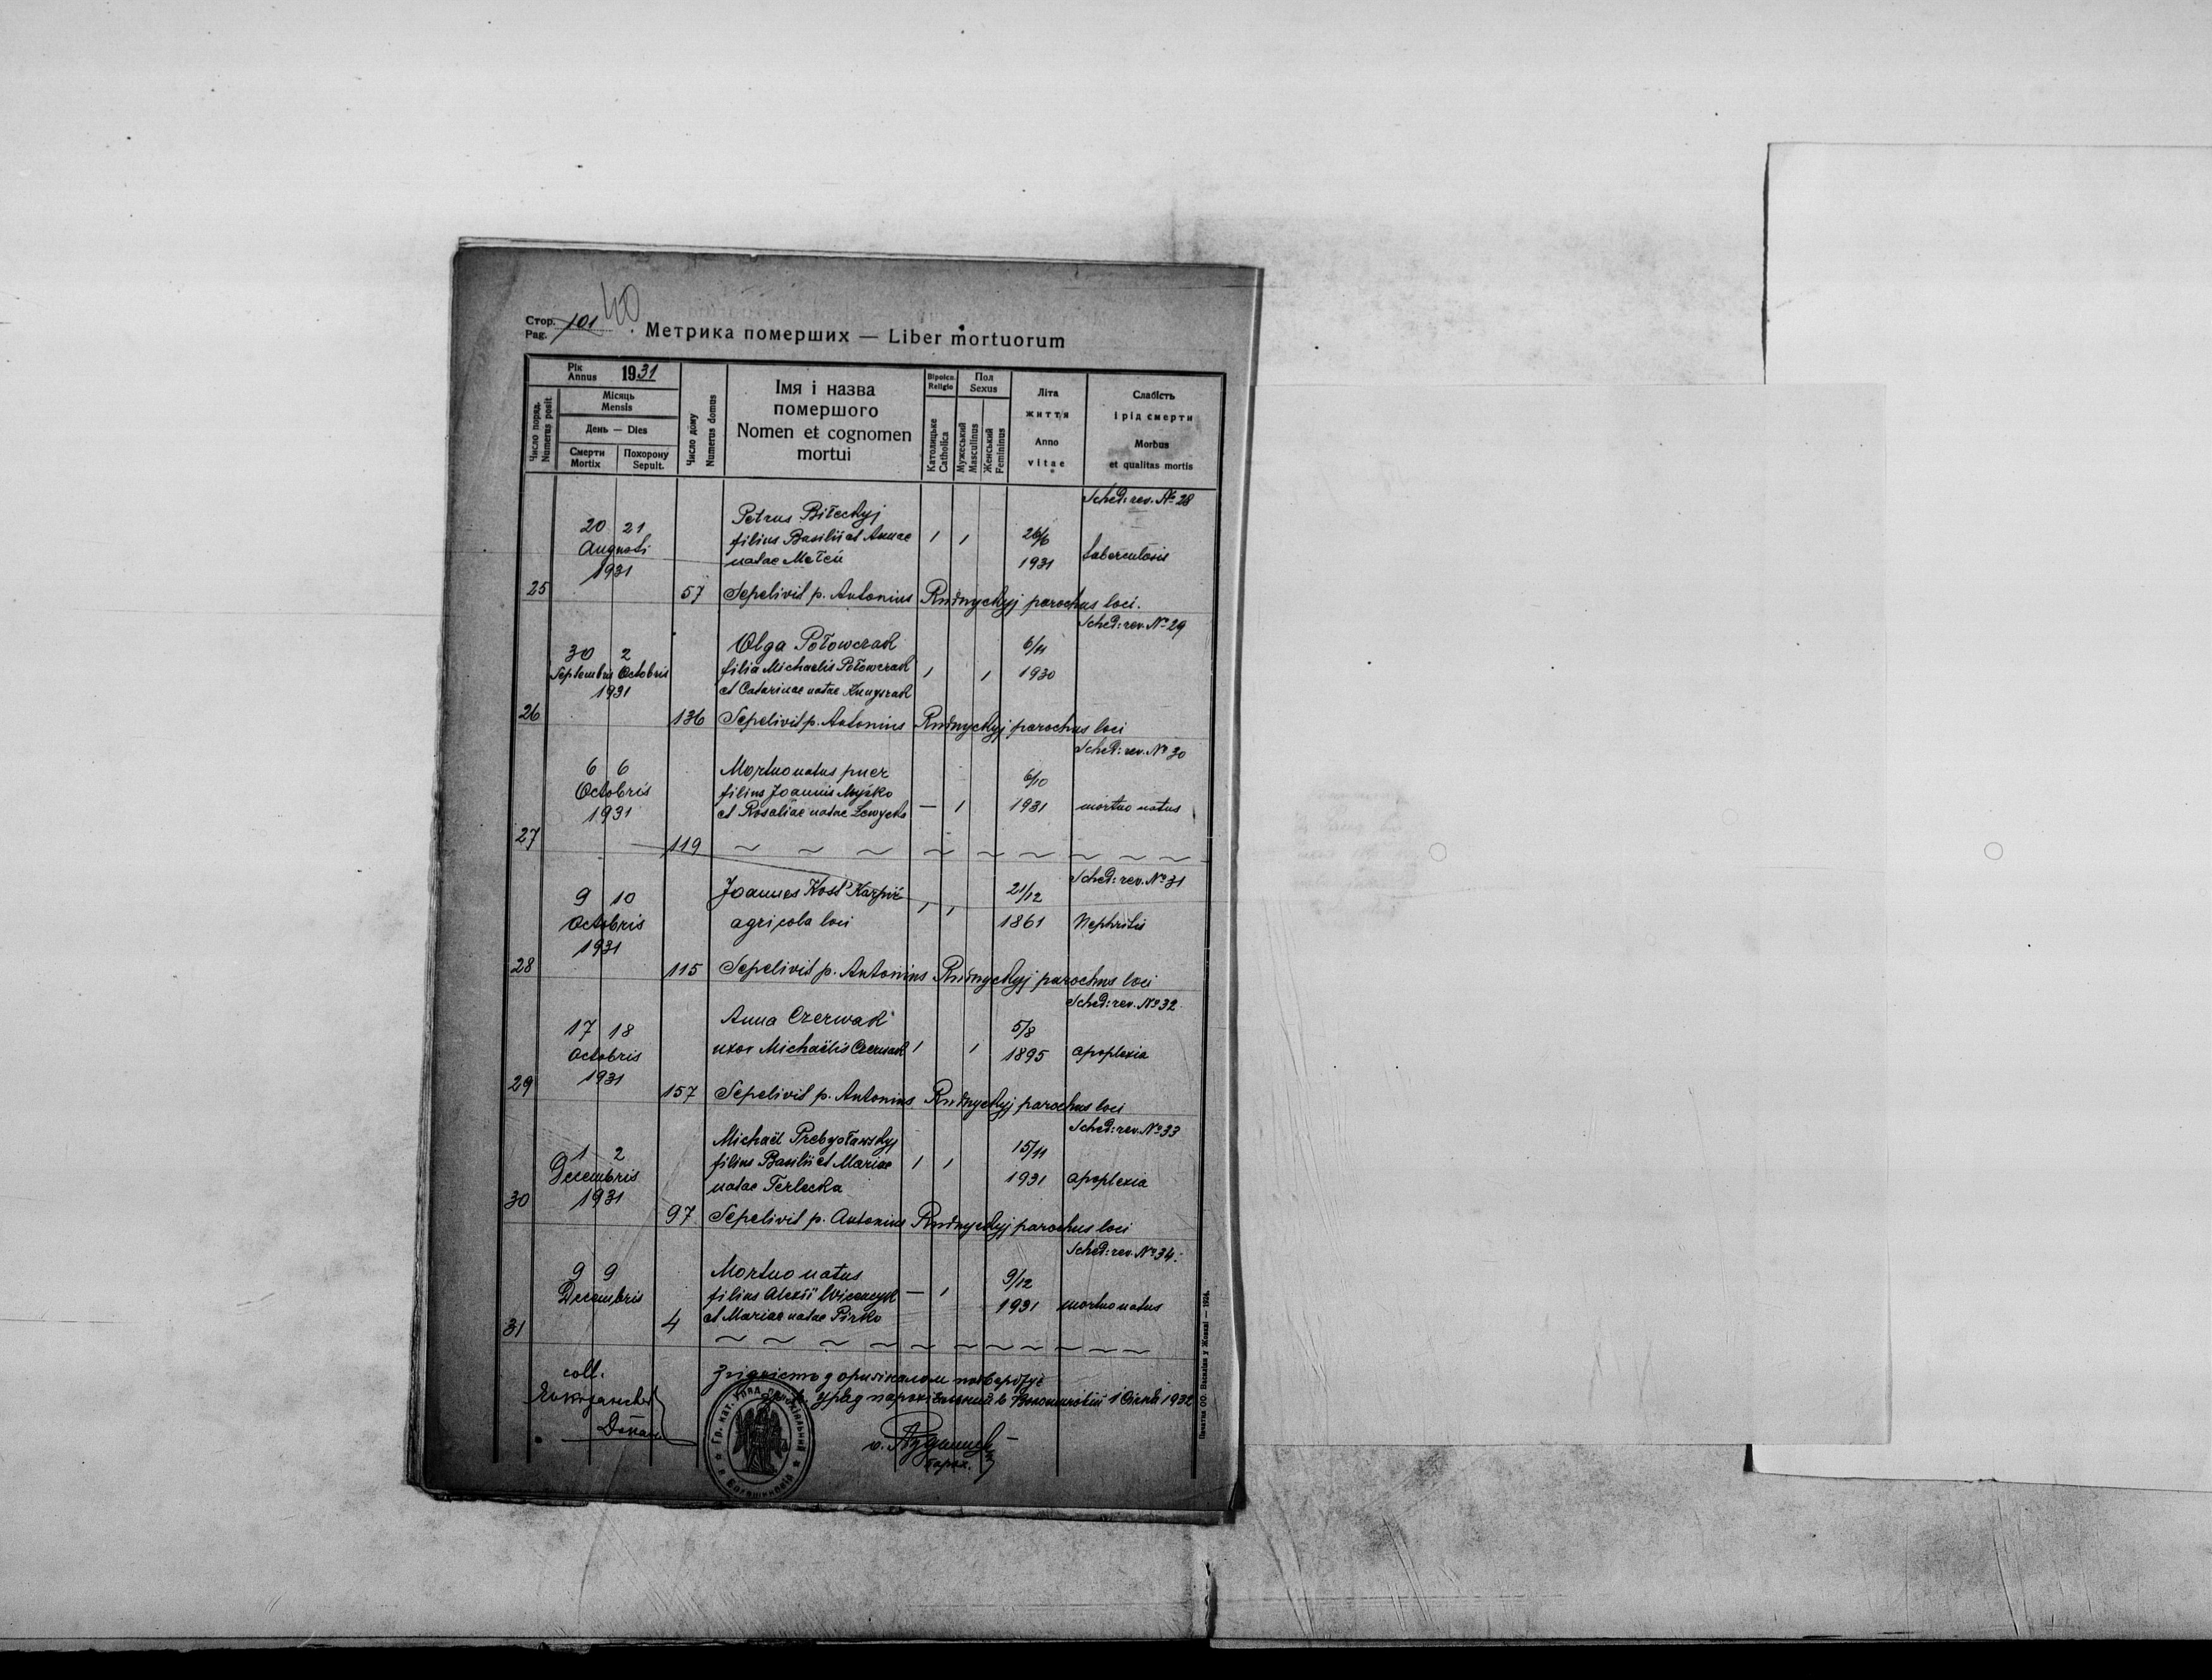 Стор. 101 40
Pag.
Метрика померших — Liber mortuorum
Рік
Annus 1931
Місяць
Mensis
День — Dies
Смерти
Mortix
Похорону
Sepult.
Число поряд.
Numerus posit
Число дому
Numerus domus
Імя і назва
помершого
Nomen et cognomen
mortui
Віроісп.
Religio
Католицьке
Catholica
Пол
Sexus
Мужеський
Masculinus
Женський
Femininus
Літа
життя
Anno
vitae
Слабість
і рід смерти
Morbus
et qualitas mortis
Sched: rev. № 28
20 21 Petrus Biłeckyj
Augusti filius Basilii et Annae 1 1 26/6
1931 natae Mełeń 1931 tuberculosis
25 57 Sepelivit p. Antonius Rudnyckyj parochus loci.
Sched: rev. № 29
30 2 Olga Połowczak 6/11
Septembris Octobris filia Michaelis Połowczak 1 1 1930
1931 et Catarinae natae
26 136 Sepelivit p. Antonius Rudnyckyj parochus loci
Sched: rev. № 30
6 6 Mortuo natus puer 6/10
Octobris filius Joannis Myśko
1931 et Rosaliae natae — 1 1931 mortuo natus
27 119 ~ ~ ~ ~ ~ ~ ~ ~ ~
Sched: rev. № 31
9 10 Joannes Kost' Karpiń 21/12
Octobris agricola loci 1 1 1861 Nephritis
1931
28 115 Sepelivit p. Antonius Rudnyckyj parochus loci
Sched: rev. № 32
17 18 Anna Czerwak 5/8
Octobris uxor Michaëlis Czerwak 1 1 1895 apoplexia
1931
29 157 Sepelivit p. Antonius Rudnyckyj parochus loci
Sched: rev. № 33
1 2 Michaël Prebysławskyj 15/11
Decembris filius Basilii et Mariae 1 1
1931 natae Terlecka 1931 apoplexia
30 97 Sepelivit p. Antonius Rudnyckyj parochus loci
Sched: rev. № 34.
9 9 Mortuo natus 9/12
Decembris filius Alexii — 1
et Mariae natae Pirko 1931 mortuo natus
31 4 ~ ~ ~ ~ ~ ~ ~ ~ ~
coll. Згідність з оригіналом потверджує
Уряд парохіяльний в 1 Січня 1932
Декан
о. Рудницкий
парох.
Гр. кат. Уряд парохіяльний
Печатня ОО. Василіян у Жовкві — 1924.